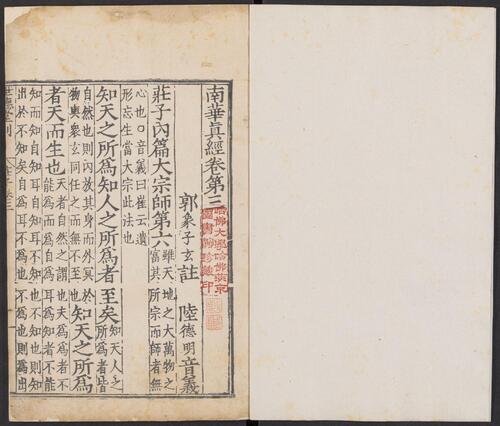 南華真經卷第三
哈佛大學哈佛燕京
圖書館珍藏印
郭象子玄註 陸德明音義
莊子內篇大宗師第六 雖天地之大萬物之富其所宗而師者無
心也○音義曰崔云遺形忘生當大宗此法也
知天之所為知人之所為者至矣 知天人之所為者皆
自然也則內放其身而外冥於物與衆玄同任之而無不至也 知天之所為
者天而生也 天者自然之謂也夫為為者不能為而為自為耳為知者不能
知而知自知耳自知耳不知也不知也則知出於不知矣自為耳不為也不為也則為出